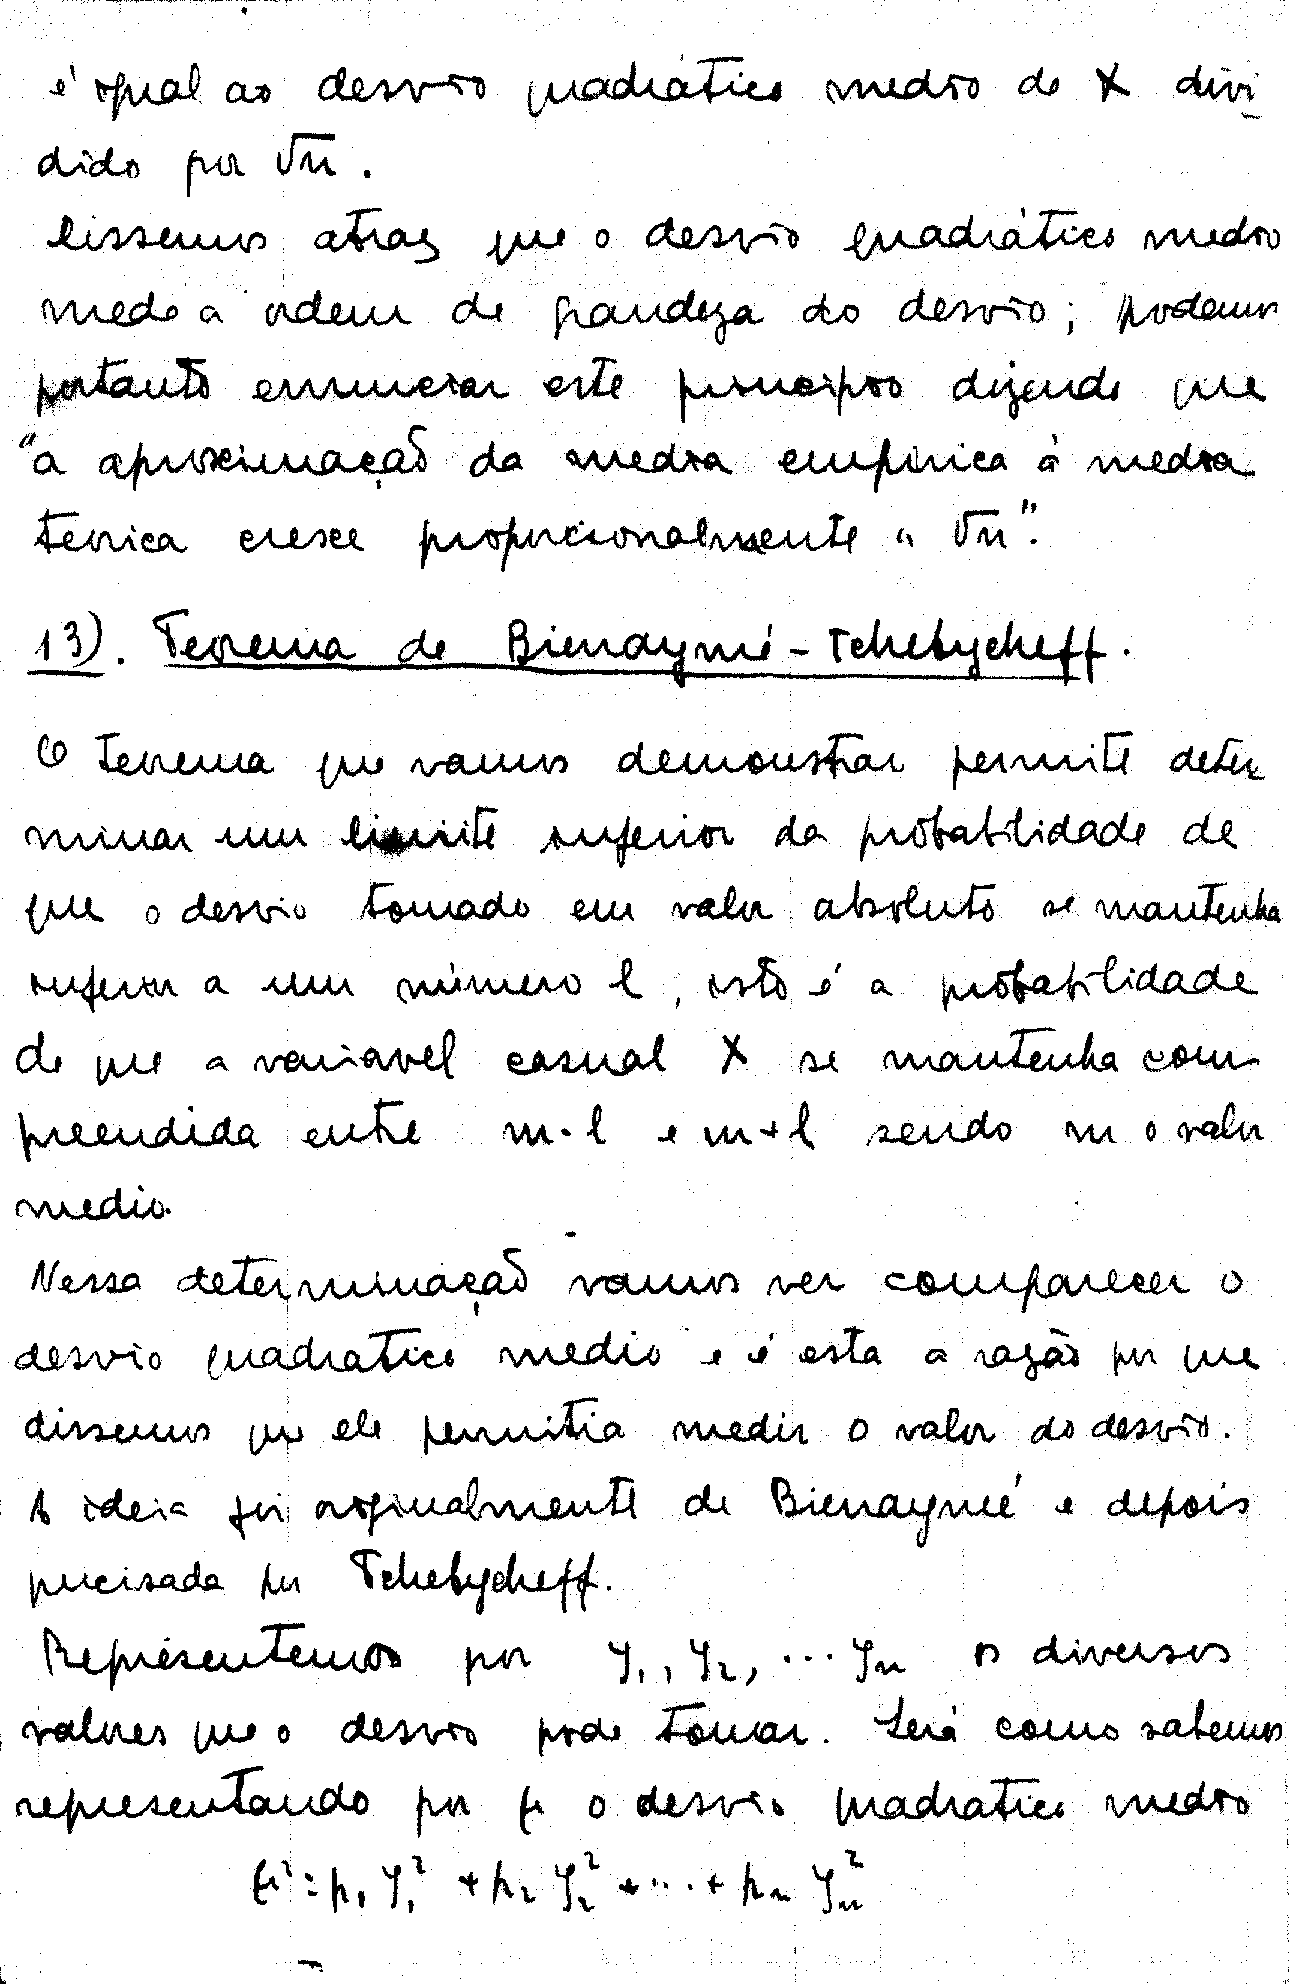 é igual ao desvio quadrático medio de X divi
dido por √n.
Dissemos atraz que o desvio quadrático medio
mede a ordem de grandeza do desvio; podemos
portanto ennunciar este principio dizendo que
"a aproximação da media empirica á media
teorica cresce proporcionalmente a √n".
13). Teorema de Bienaymé-Tchebycheff.
O teorema que vamos demonstrar permite deter
minar um limite inferior da probabilidade de
que o desvio tomado em valor absoluto se mantenha
inferior a um número l, isto é a probabilidade
de que a variavel casual X se mantenha com-
preendida entre m-l e m+l sendo m o valor
medio.
Nessa determinação vamos ver comparecer o
desvio quadratico medio e é esta a razão por que
dissemos que ele permitia medir o valor do desvio.
A ideia foi originalmente de Bienaymé e depois
precisada por Tchebycheff.
Representemos por y₁, y₂, ... yₙ os diversos
valores que o desvio pode tomar. Será como sabemos
representando por μ o desvio quadratico medio
μ² = p₁ y₁² + p₂ y₂² + ... + pₙ yₙ²